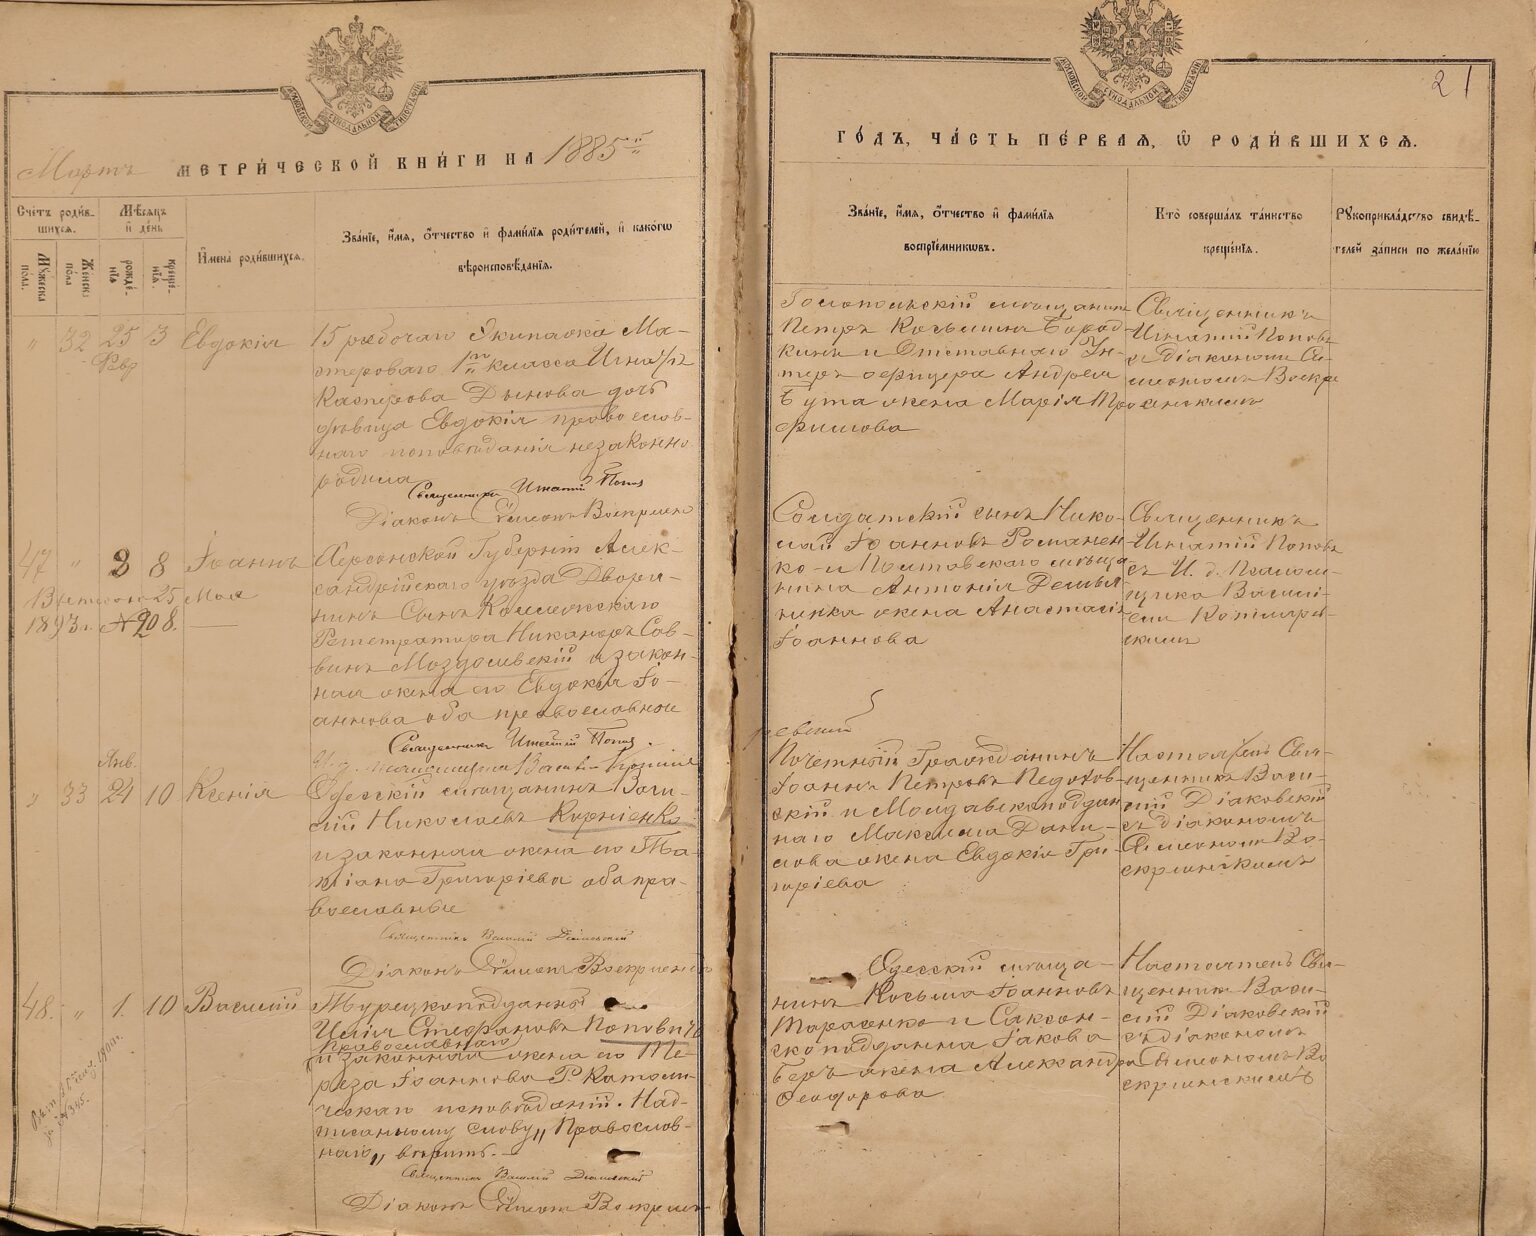 Мартъ МЕТРИ́ЧЕСКОЙ КНИ́ГИ НА 1885й
Сче́тъ роди́вшихся.
Мѣ́сяцъ и҆ де́нь
И҆мена̀ роди́вшихся.
Зва́нїе, и҆́мя, ѻ҆́тчество и҆ фами́лїя роди́телей, и҆ како́гѡ
вѣроисповѣ́данїя.
Му́жеска по́ла.
Же́нска по́ла
рожде́нїя
креще́нїя.
" 32 25 3 Евдокія
Февр
15 рабочаго Экипажа Ма-
стероваго 1го класса Игнатія
Касперова Дынова дочь
дѣвица Евдокія православ-
наго исповѣданія незаконно
родила
Священникъ Игнатій Попов
Діаконъ Симеонъ Воскрсенс
47 " 8 8 Іоаннъ
Выдано 25 Мая
1893 г. № 208.
Херсонской Губерніи Алек-
сандрійскаго уѣзда Двори-
нинъ Сынъ Коллежскаго
Регистратора Никаноръ Сав-
винъ Моздолевскій и закон-
ная жена его Евдокія Іо-
аннова оба православные
Священникъ Игнатій Попов.
И. д. псаломщика Василій
Янв.
" 33 24 10 Ксенія
Одесскій мѣщанинъ Васи-
лій Николаевъ Корніенко
и законная жена его Та-
тіана Григоріева оба пра-
вославные
Священникъ Василій Діаковскій
Діаконъ Симеонъ Воскрсенск
48. " 1. 10 Василій
Турецкоподданный
Илія Стефановъ Поповичъ
Православнаго
и законная жена его Те-
реза Іоаннова Р. Католи-
ческаго исповѣданій. Над-
писанному слову „Православ-
наго„ вѣрить. —
Священникъ Василій Діаковскій
Діаконъ Симеонъ Воскрсен
21
ГО́ДЪ, ЧА́СТЬ ПЕ́РВАЯ, Ѿ РОДИ́ВШИХСЯ.
Зва́нїе, и҆́мя, ѻ҆́тчество и҆ фами́лїя
воспрїе́мникѡвъ.
Кто̀ соверша́лъ та́инство
креще́нїя.
Рукоприкла́дство свидѣ́-
телей за́писи по жела́нїю
мѣщанинъ
Петръ Козьминъ Бород-
кинъ и Отставнаго Ун-
теръ офицера Андрея
Бута жена Марія Тро
фимова
Священникъ
Игнатій Поповъ
съ Діакономъ Си-
меономъ Воскре
сенскимъ
Солдатскій сынъ Нико-
лай Іоанновъ Романен
ко и Полтавскаго мѣща
нина Антонія Демья
ника жена Анастасія
Іоаннова
Священникъ
Игнатій Поповъ
съ И. д. Псалом-
щика Васи-
іемъ Котляре-
вскимъ
Почетный Гражданинъ
Іоаннъ Петровъ Педохов-
скій и Молдавскоподдан
наго Максима Дани-
лова жена Евдокія Гри-
горіева
Настоятель Свя-
щенникъ Васи-
лій Діаковскій
съ діакономъ
Симеономъ Во-
скресенскимъ
Одесскій мѣща-
нинъ Козьма Іоанновъ
Тарасенко и Саксон-
скоподданна Іакова
Беръ жена Александра
Феодорова
Настоятель Свя-
щенникъ Васи-
лій Діаковскій
съ діакономъ
Симеономъ Во
скресенскимъ